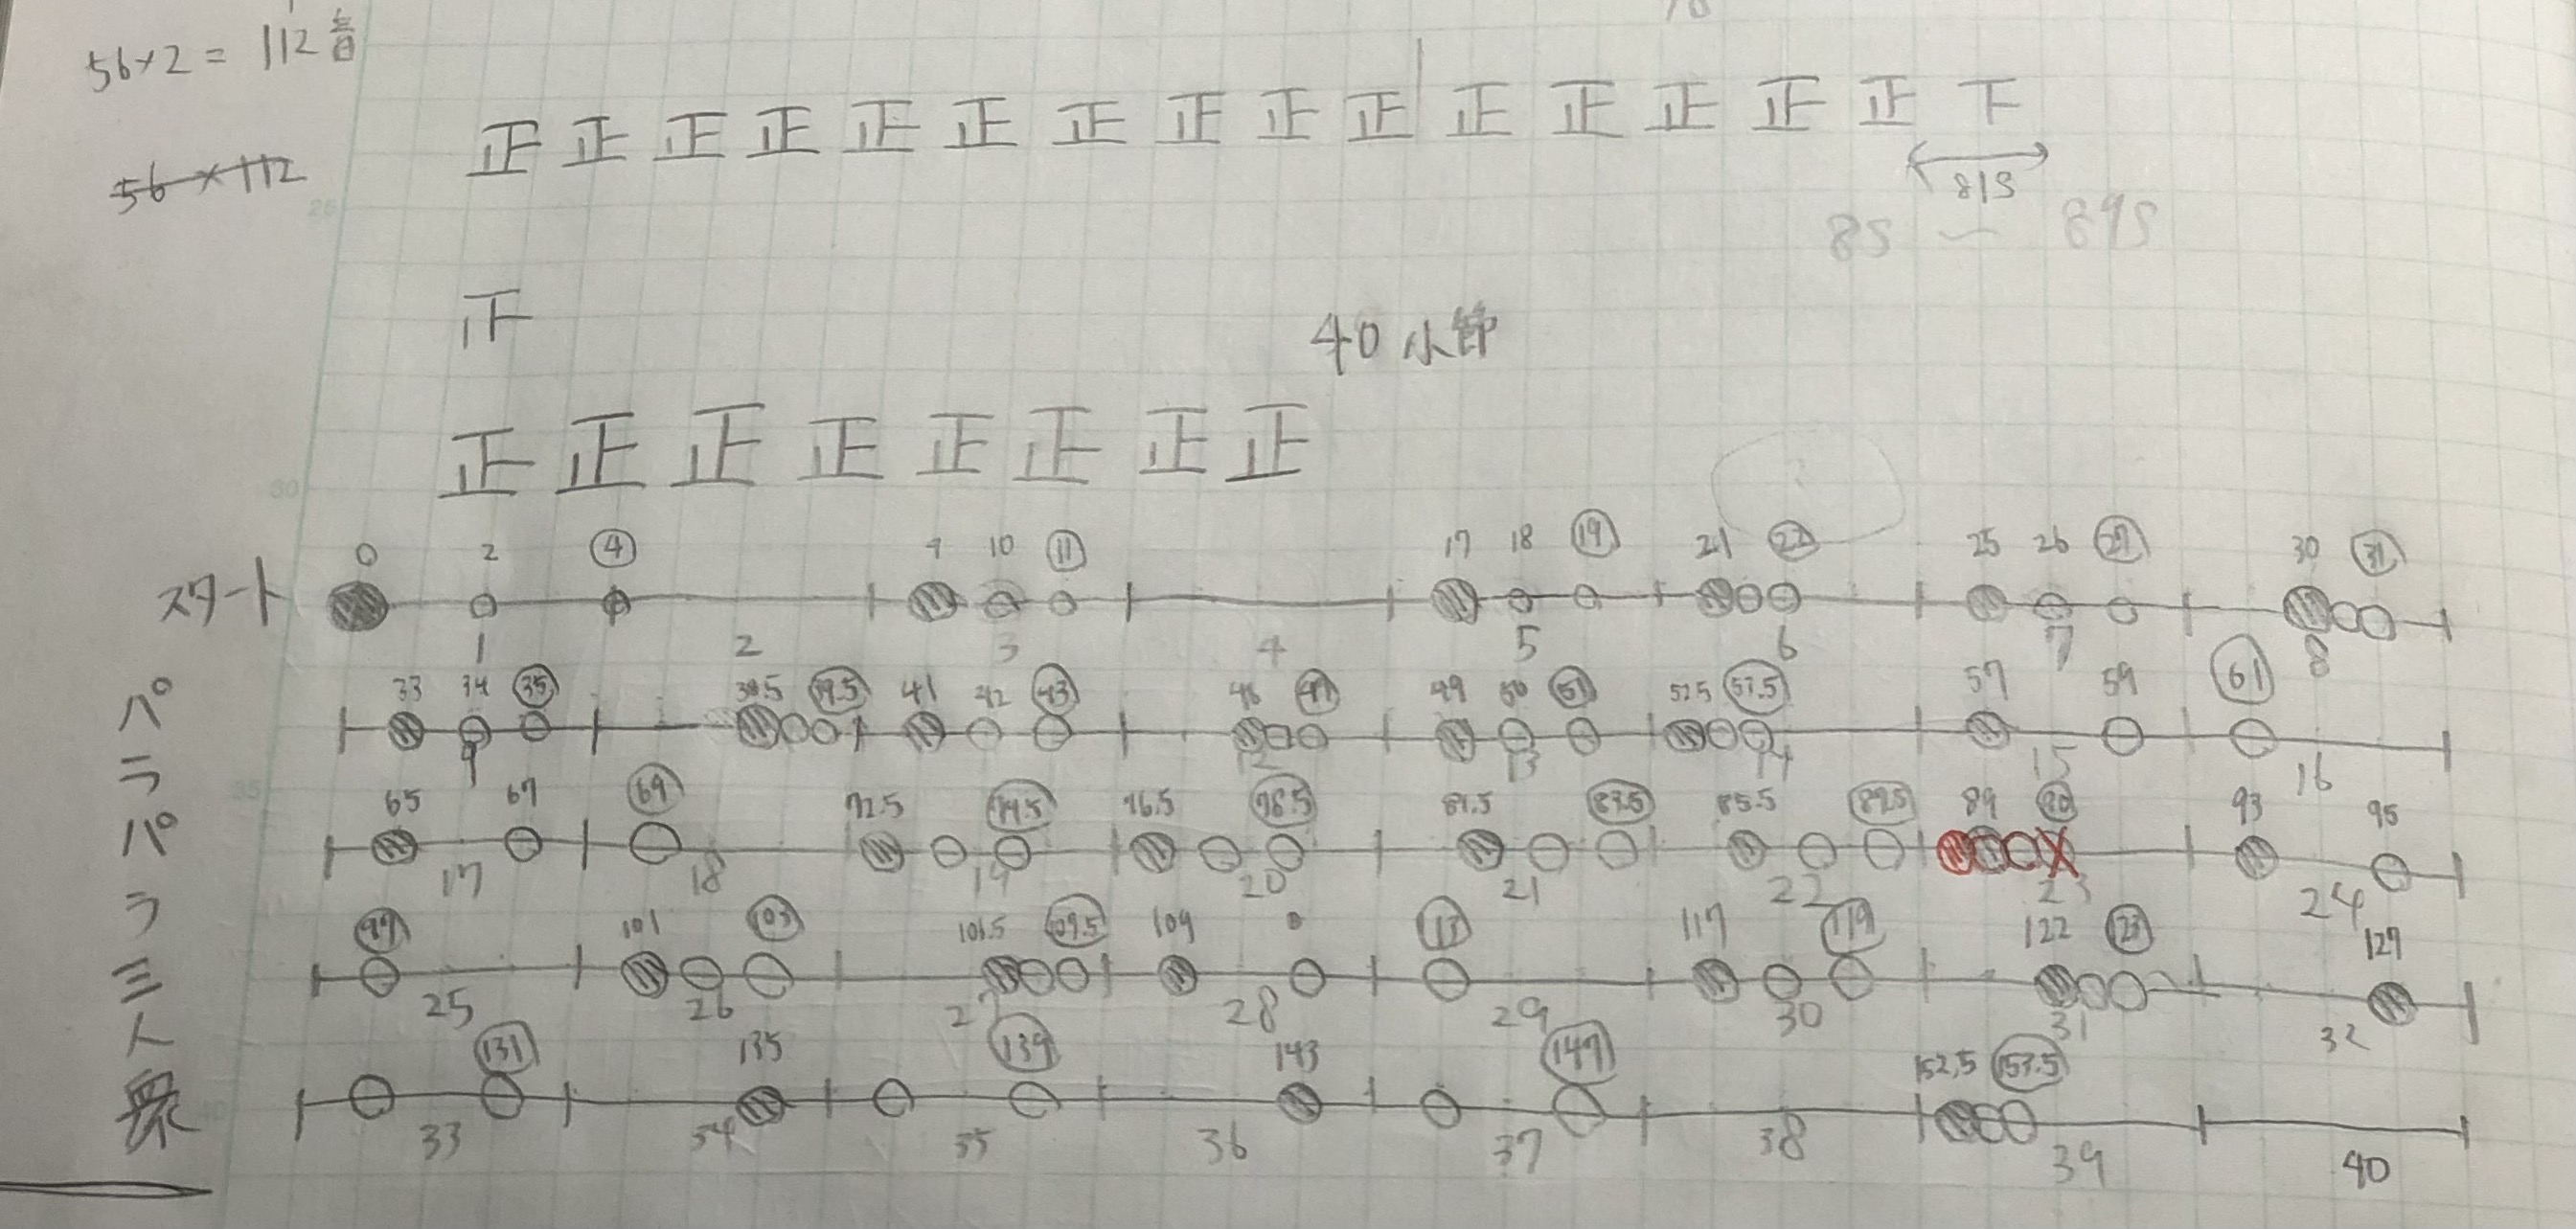 56×2=112音
56×112
正 正 正 正 正 正 正 正 正 正 正 正 正 正 正 下
81S
8S ー 89S
正
40小節
正 正 正 正 正 正 正 正
0 2 4 9 10 11 17 18 19 21 22 25 26 27 30 31
スタート
1 2 3 4 5 6 7 8
33 34 35 38.5 39.5 41 42 43 46 47 49 50 51 52.5 53.5 57 59 61
9 12 13 14 15 16
65 67 69 72.5 74.5 76.5 78.5 81.5 83.5 85.5 89 93 95
17 18 19 20 21 22 23 24
97 101 103 109.5 109 113 117 119 122 123 127
25 26 27 28 29 30 31 32
131 135 139 143 147 152.5 153.5
33 34 35 36 37 38 39 40
パラパラミト